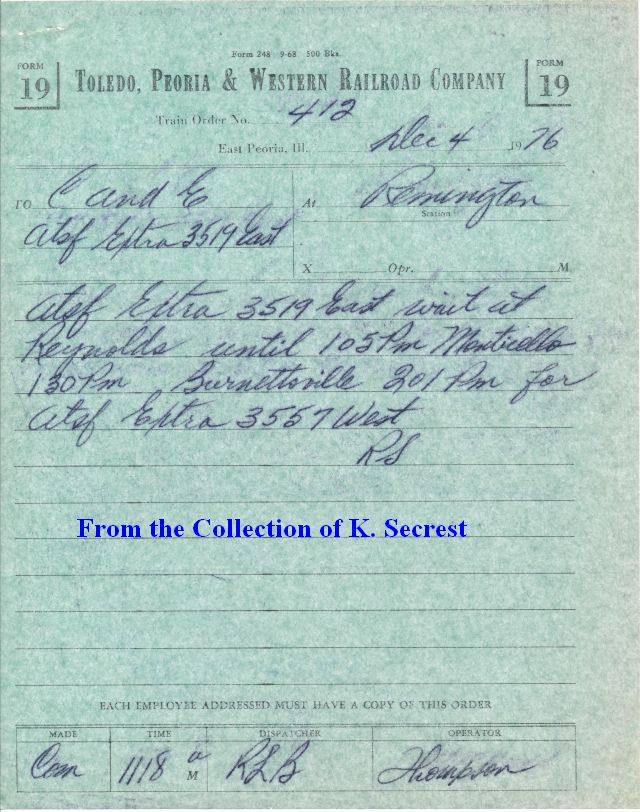 Form 248 9-68 500 Bks.
FORM 19
TOLEDO, PEORIA & WESTERN RAILROAD COMPANY
FORM 19
Train Order No. 412
East Peoria, Ill. Dec 4 1976
TO C and E At Remington
Station
Atsf Extra 3519 East
X Opr. M
Atsf Extra 3519 East wait at
Reynolds until 105 Pm Monticello
130 Pm Burnettsville 201 Pm for
Atsf Extra 3557 West
From the Collection of K. Secrest
EACH EMPLOYEE ADDRESSED MUST HAVE A COPY OF THIS ORDER
MADE TIME DISPATCHER OPERATOR
Com 1118 a M RLB Thompson